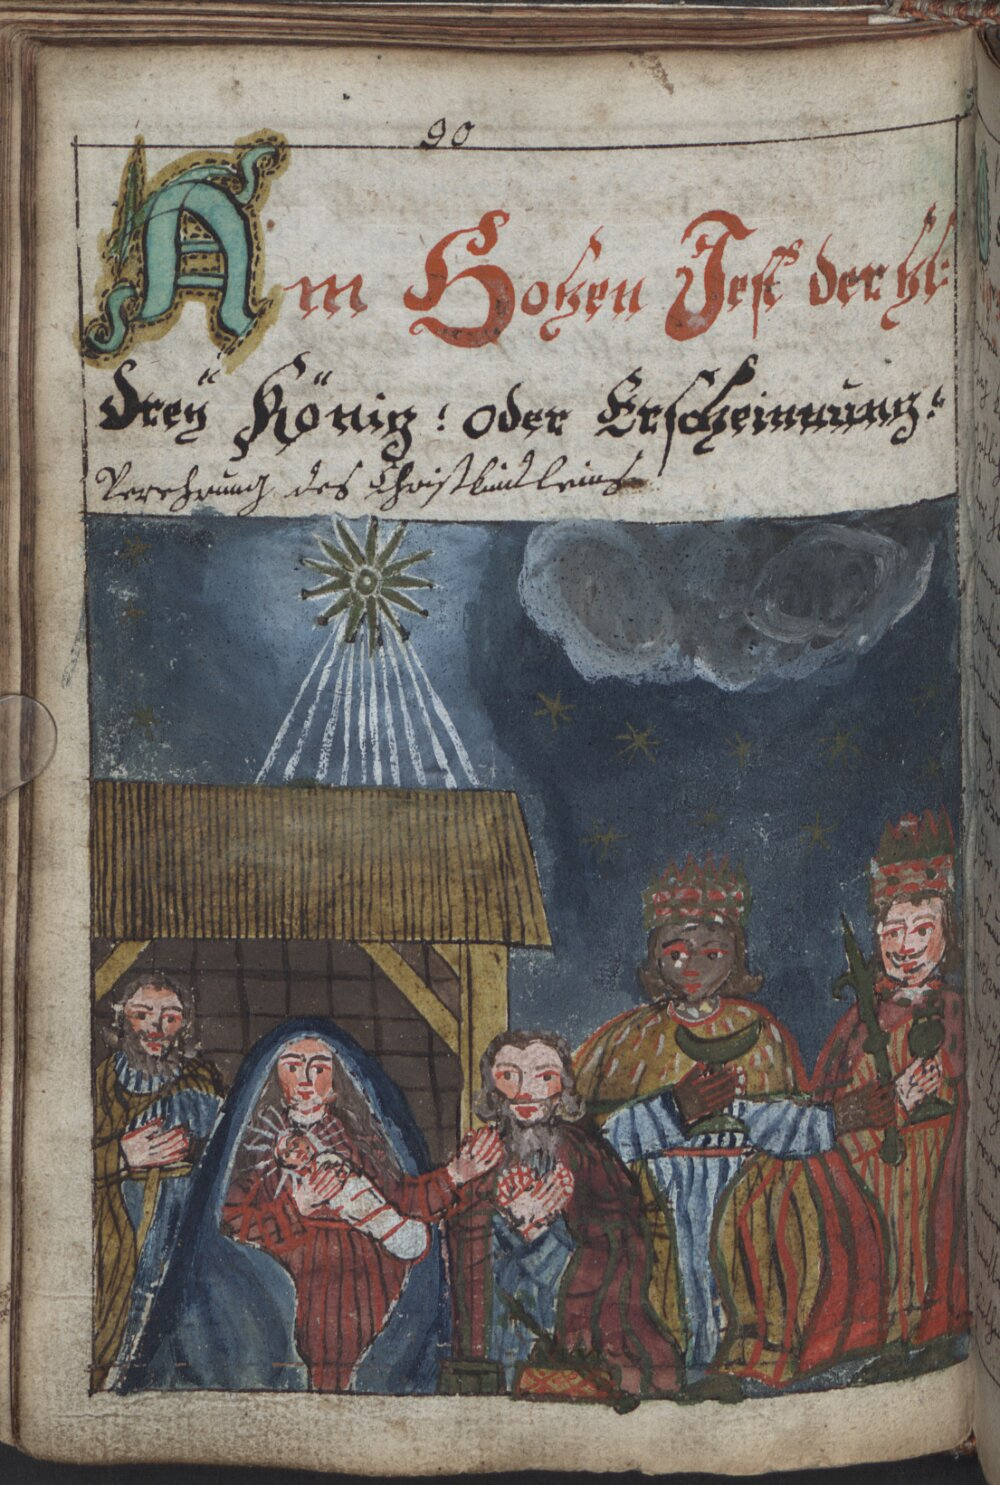 90
Am Hohen Fest der hl:
dreÿ König: oder Erscheinnung:
Verehrung des Christkindleins